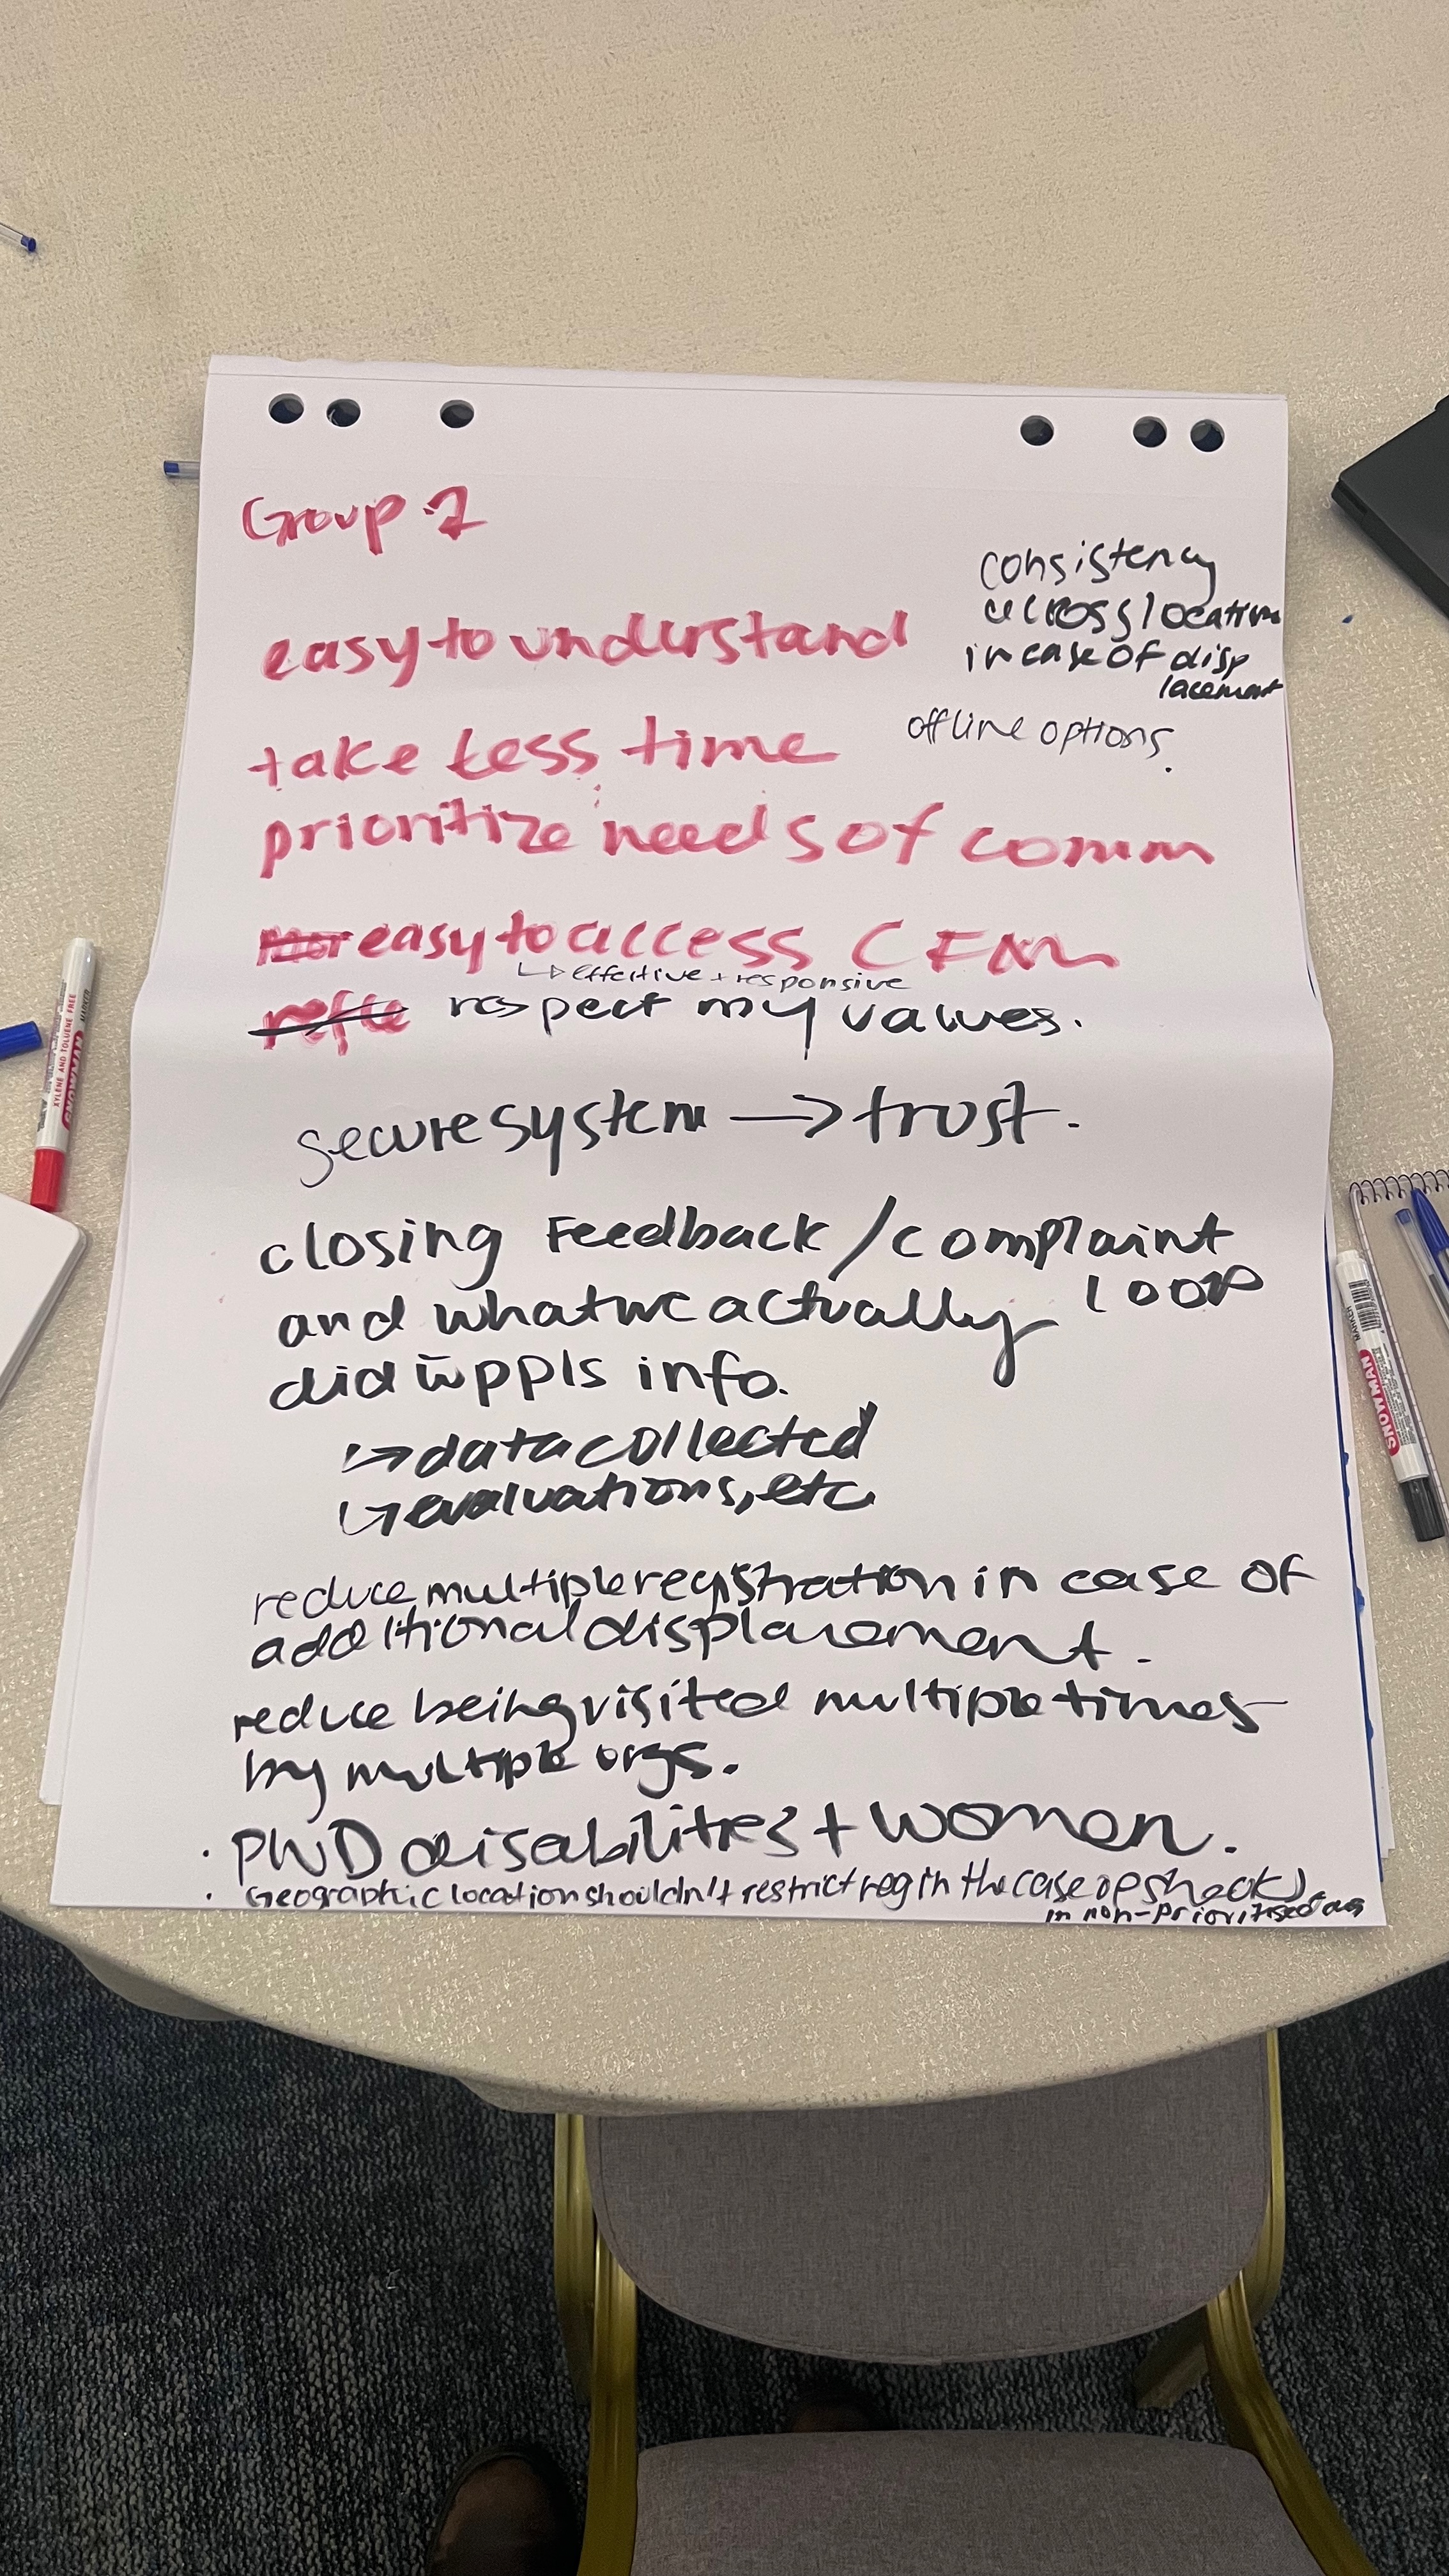 Group
easy to understand
consistency
across location
in case of disp
lacement
offline options.
take less time
prioritize needs of comm
easy to access CFM
↳ effective + responsive
respect my values.
secure system → trust.
closing Feedback/complaint
loop
and what we actually
did w̄ ppls info.
↳ data collected
↳ evaluations, etc
reduce multiple registration in case of
additional displacement.
reduce being visited multiple times
by multiple orgs.
· PWD disabilities + women.
· Geographic location shouldn't restrict reg in the case of shock
in non-prioritised
SNOWMAN
XYLENE AND TOLUENE FREE
MARKER
SNOWMAN
MARKER